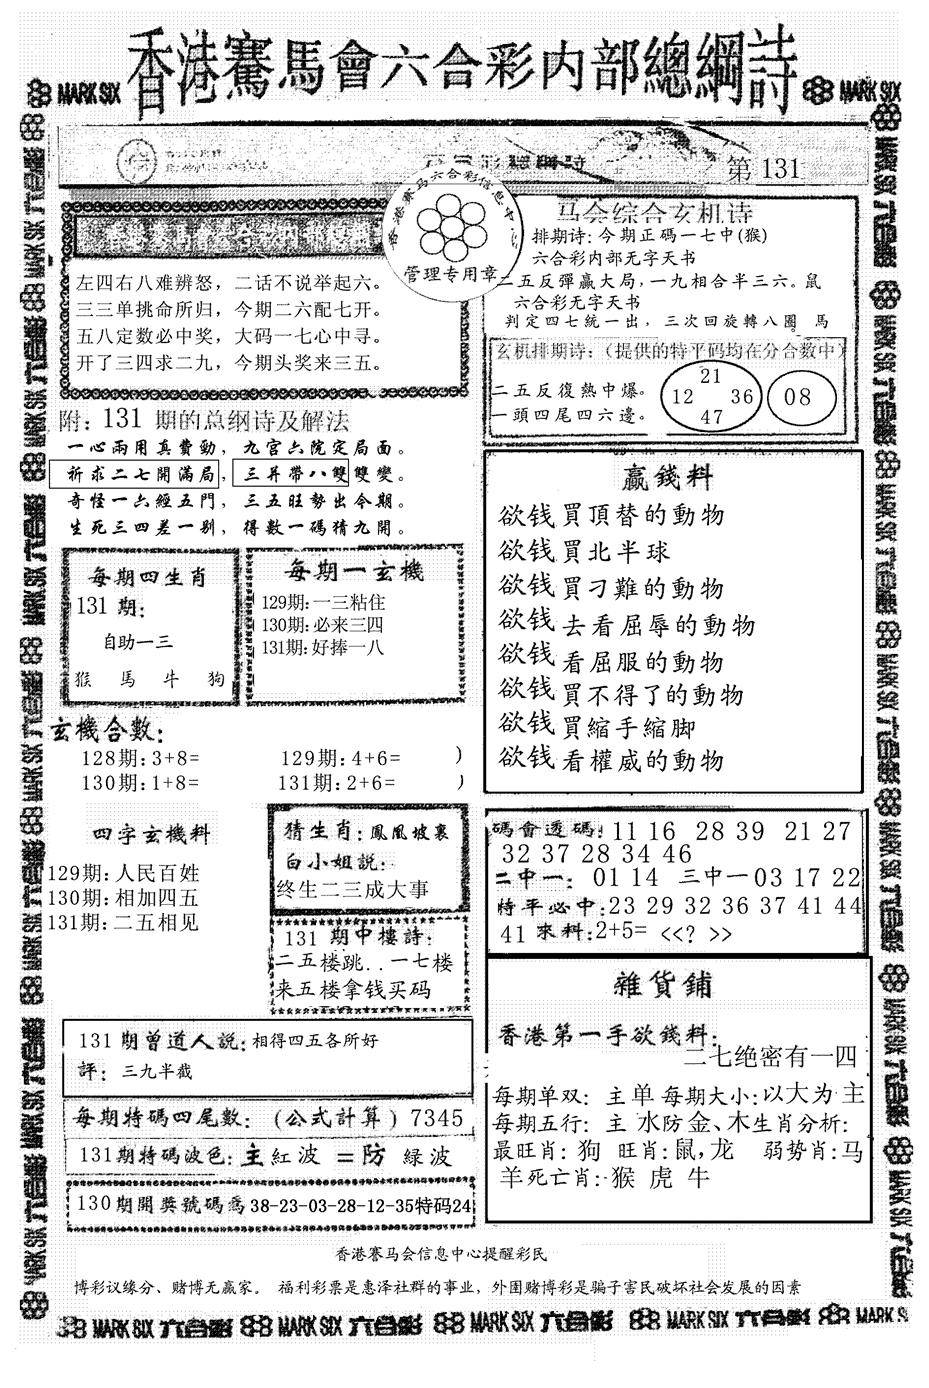 香港賽馬會六合彩内部總綱詩
MARK SIX
MARK SIX
第 131
香港赛马六合彩信息中心
管理专用章
左四右八难辨怒，二话不说举起六。
三三单挑命所归，今期二六配七开。
五八定数必中奖，大码一七心中寻。
开了三四求二九，今期头奖来三五。
马会综合玄机诗
排期诗：今期正碼一七中(猴)
六合彩内部无字天书
二五反彈贏大局，一九相合半三六。鼠
六合彩无字天书
判定四七統一出，三次回旋轉八圈。馬
玄机排期诗：（提供的特平码均在分合数中）
二五反復熱中爆。
一頭四尾四六邊。
21
12 36
47
08
附：131 期的总纲诗及解法
一心兩用真費勁，九宮六院定局面。
祈求二七開滿局，三幷帶八雙雙變。
奇怪一六經五門，三五旺勢出今期。
生死三四差一别，得數一碼猜九開。
每期四生肖
131 期：
自助一三
猴 馬 牛 狗
每期一玄機
129期:一三粘住
130期:必来三四
131期:好捧一八
玄機合數：
128期:3+8= 129期:4+6= )
130期:1+8= 131期:2+6= )
四字玄機料
129期:人民百姓
130期:相加四五
131期:二五相见
猜生肖：鳳凰坡裏
白小姐説：
终生二三成大事
131 期中樓詩：
二五楼跳..一七楼
来五楼拿钱买码
贏錢料
欲钱買頂替的動物
欲钱買北半球
欲钱買刁難的動物
欲钱去看屈辱的動物
欲钱看屈服的動物
欲钱買不得了的動物
欲钱買縮手縮脚
欲钱看權威的動物
碼會透碼：11 16 28 39 21 27
32 37 28 34 46
二中一：01 14 三中一03 17 22
特平必中:23 29 32 36 37 41 44
41 來料:2+5= <<? >>
131 期曾道人説：相得四五各所好
評：三九半截
每期特碼四尾數：(公式計算) 7345
131期特碼波色：主紅波 =防 緑波
130期開獎號碼爲38-23-03-28-12-35特码24
雜貨鋪
香港第一手欲錢料：
二七绝密有一四
每期单双：主单 每期大小：以大为主
每期五行：主 水防金、木生肖分析：
最旺肖：狗 旺肖：鼠，龙 弱势肖：马
羊死亡肖：猴 虎 牛
香港赛马会信息中心提醒彩民
博彩议缘分、赌博无赢家。 福利彩票是惠泽社群的事业，外围赌博彩是骗子害民破坏社会发展的因素
MARK SIX 六合彩 MARK SIX 六合彩 MARK SIX 六合彩 MARK SIX 六合彩 MARK SIX